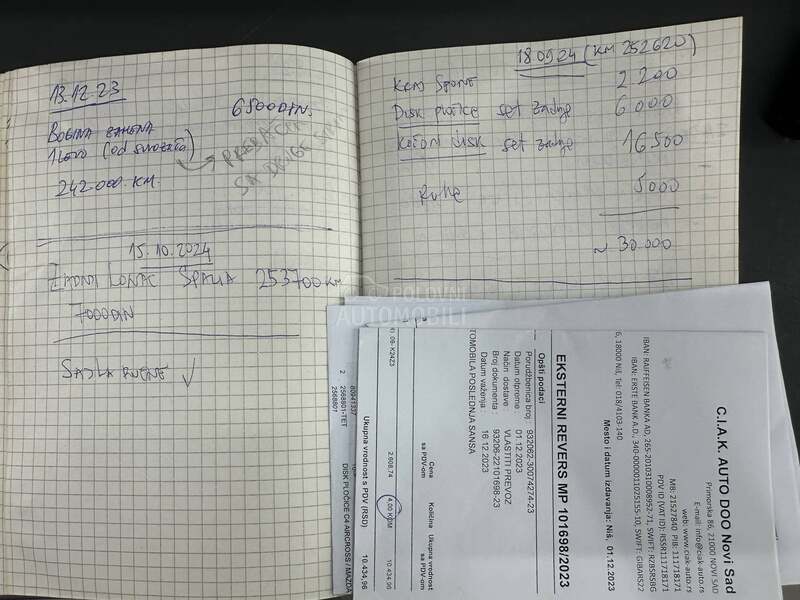 13.12.23
6500 DIN.
BOBINA
NOVO (od
242.000 KM.
PREBAČENA
SA DRUGE
15.10.2024
ZADNJI LONAC 253700 KM
7000 DIN
SAJLA RUČNE ✓
18.09.24 (KM 252620)
2200
Disk pločice set zadnje 6000
Kočioni disk set zadnje 16500
Ruke 5000
~ 30.000
POLOVNI
AUTOMOBILI
C.I.A.K. AUTO DOO Novi Sad
Primorska 86, 21000 NOVI SAD
E-mail: info@ciak-auto.rs
web: www.ciak-auto.rs
MB: 21527840 PIB: 111718171
PDV ID (VAT ID): RS111718171
IBAN: RAIFFEISEN BANKA AD, 265-2010310008952-71, SWIFT: RZBSRSBG
IBAN: ERSTE BANK A.D., 340-0000011025155-10, SWIFT: GIBARS22
6, 18000 Niš, Tel: 018/4103-140
Mesto i datum izdavanja: Niš, 01.12.2023
EKSTERNI REVERS MP 101698/2023
Opšti podaci
Porudžbenica broj : 932062-30074274-23
Datum otpreme : 01.12.2023
Način dostave : VLASTITI PREVOZ
Broj dokumenta : 93206-22101698-23
Datum važenja : 16.12.2023
TOMOBILA POSLEDNJA SANSA
Cena sa PDV-om
Količina
Ukupna vrednost sa PDV-om
2.608,74
4,00 KOM
10.434,96
Ukupna vrednost s PDV (RSD)
10.434,96
80941337
2 2568801-TET
2568801
DISK PLOČICE C4 AIRCROSS / MAZDA